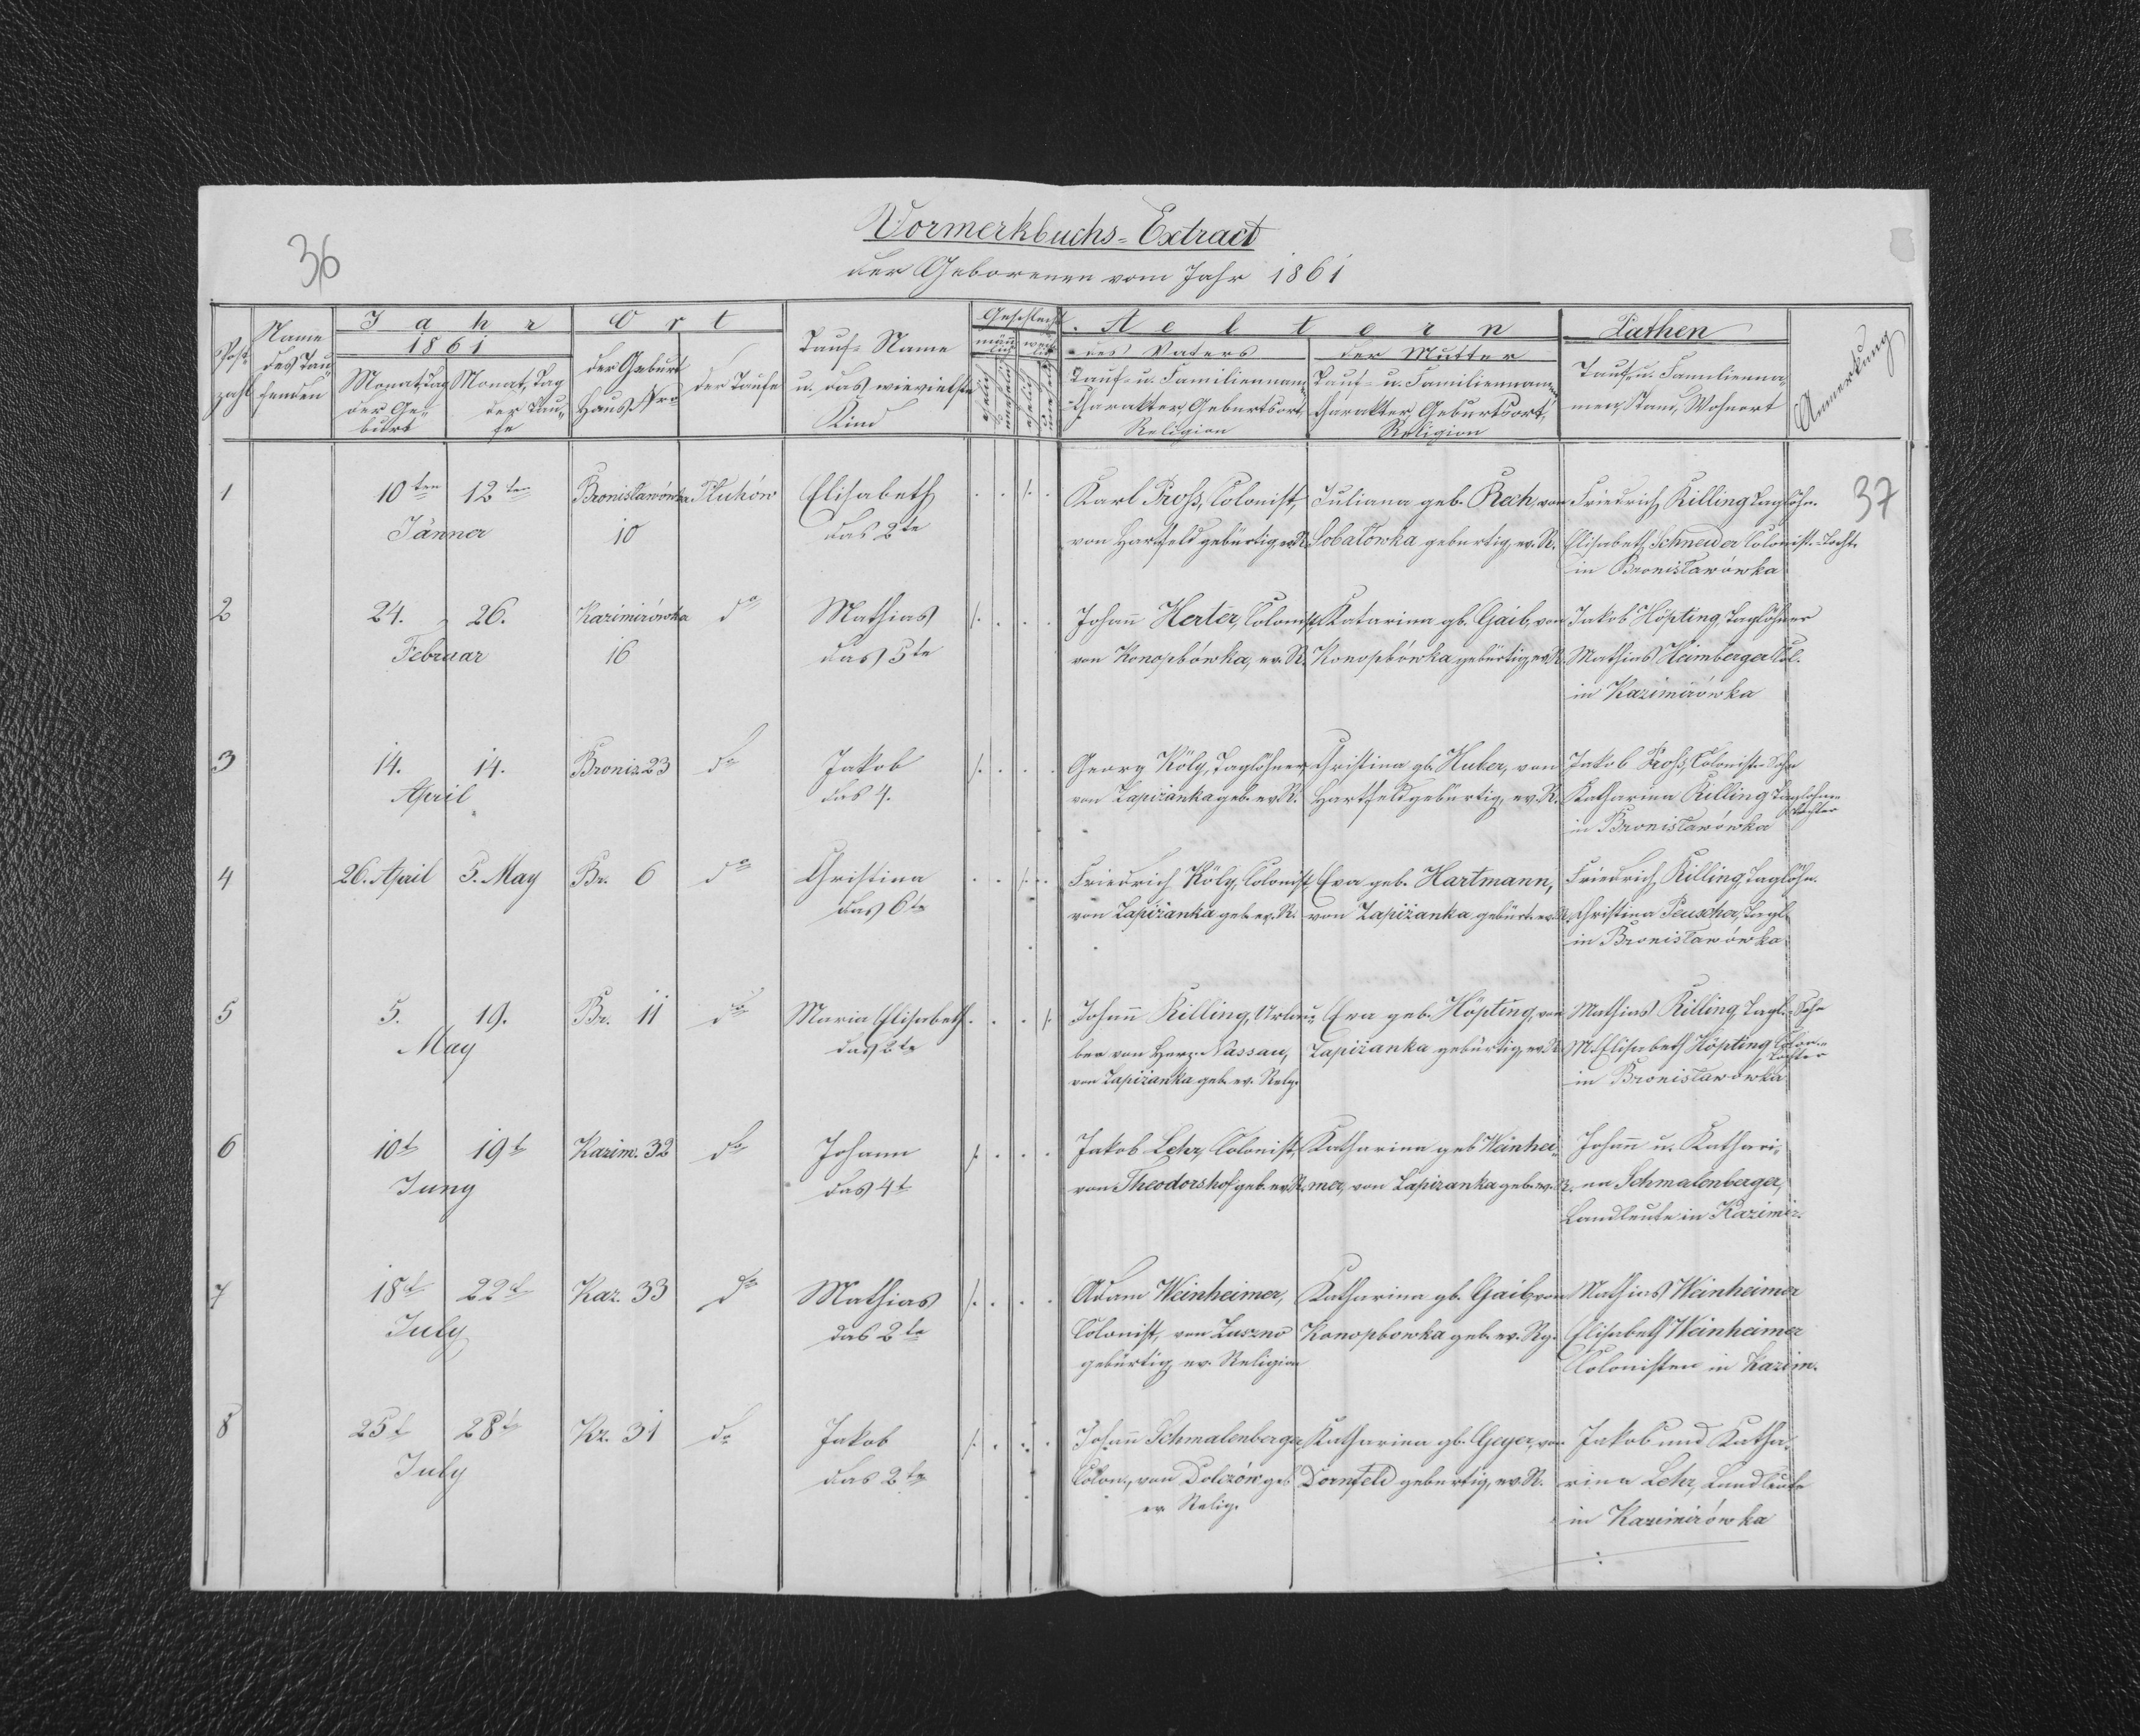 Vormerkbuchs-Extract
der Geborenen vom Jahr 1861
36
37
Post-zahl
Name des Taufenden
Jahr
1861
Monat, Tag der Geburt
Monat, Tag der Taufe
Ort
der Geburt Haus Nro
der Taufe
Tauf-Name u. das wievielste Kind
Geschlecht
männlich
weiblich
Aeltern
des Vaters
Tauf- u. Familienname
Charakter, Geburtsort,
Religion
der Mutter
Tauf- u. Familienname
Charakter, Geburtsort,
Religion
Pathen
Tauf- u. Familienna-
men, Stand, Wohnort
Anmerkung
1
10ten 12ten
Jänner
Bronislawówka
10
Pluhów
Elisabeth
das 2te
Karl Proß, Colonist,
von Hartfeld gebürtig, ev. R.
Juliana geb. Rech, von
Sobatówka gebürtig, ev. R.
Friedrich Killing, Taglöhn.
Elisabeth Schneider Colonist.-Tocht.
in Bronislawówka
2
24. 26.
Februar
Kazimirówka
16
do
Mathias
das 5te
Johann Herter, Colonist,
von Konopkówka, ev. R.
Katarina gb. Gaib, von
Konopkówka gebürtig, ev. R.
Jakob Höpting, Taglöhner
Mathias Heimberger Col.
in Kazimirówka
3
14. 14.
April
Bronis. 23
do
Jakob
das 4.
Georg Köly, Taglöhner,
von Zapizanka geb. ev. R.
Christina gb. Huber, von
Hartfeld gebürtig, ev. R.
Jakob Proß, Colonist.-Sohn
Katharina Killing Taglöhner-
Tochter
in Bronislawówka
4
26. April 5. May
Br. 6
do
Christina
das 6te
Friedrich Köly, Colonist
von Zapizanka geb. ev. R.
Eva geb. Hartmann,
von Zapizanka gebürt. ev. R.
Friedrich Killing, Taglöhn.
Christina Peuscher, Tagl.
in Bronislawówka
5
5. 19.
May
Br. 11
do
Maria Elisabeth
das 2te
Johann Killing, Urlau-
ber von Herz. Nassau,
von Zapizanka geb. ev. Relg.
Eva geb. Höpting, von
Zapizanka gebürtig, ev. R.
Mathias Killing, Tagl.-Sohn
M. Elisabeth Höpting, Colon.-
Tochter
in Bronislawówka
6
10t 19t
Juny
Kazim. 32
do
Johann
das 4t
Jakob Lehr, Colonist,
von Theodorshof geb. ev. R.
Katharina geb Weinhei-
mer, von Zapizanka geb. ev. R.
Johann u. Kathari-
na Schmalenberger,
Landleute in Kazimir.
7
18t 22t
July
Kaz. 33
do
Mathias
das 2te
Adam Weinheimer,
Colonist, von Zuszno
gebürtig, ev. Religion
Katharina gb. Gaib, von
Konopkowka geb. ev. Rg.
Mathias Weinheimer
Elisabeth Weinheimer
Colonisten in Kazim.
8
25t 28t
July
Kz. 31
do
Jakob
das 2te
Johann Schmalenberger
Colon., von Dolczów geb
ev. Relig.
Katharina gb. Geyer, von
Dornfeld gebürtig, ev. R.
Jakob und Katha-
rina Lehr, Landleute
in Kazimirówka